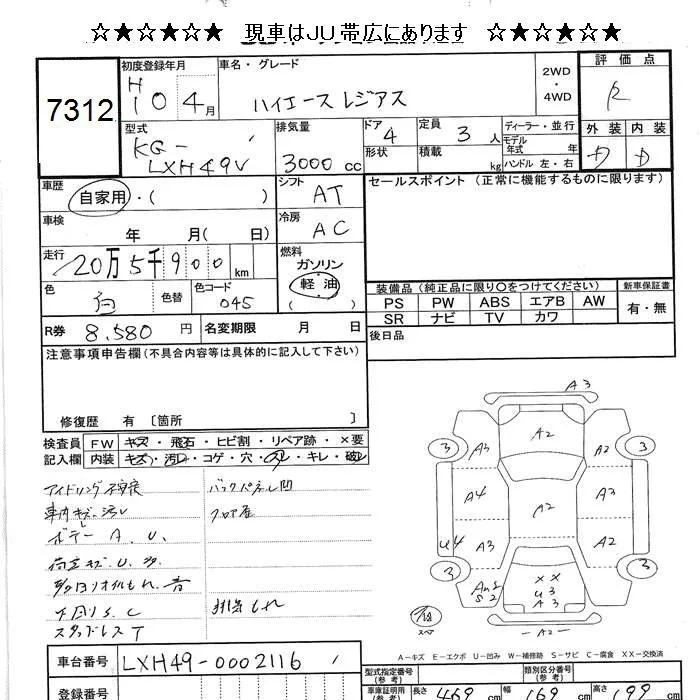 ☆★☆★☆★ 現車はJU帯広にあります ☆★☆★☆★
7312
初度登録年月
H10 4月
車名・グレード
ハイエースレジアス
2WD
・
4WD
評価点
R
外装 内装
D D
型式
KG-
LXH49V
排気量
3000 cc
ドア 4
形状
定員 3 人
積載 kg
ディーラー・並行
モデル年式 年
ハンドル 左・右
車歴
自家用・( )
シフト AT
車検
年 月( 日)
冷房 AC
走行
20万5千900 km
燃料
ガソリン
軽油
( )
色 白
色替
色コード 045
R券 8,580 円
名変期限 月 日
セールスポイント (正常に機能するものに限ります)
装備品(純正品に限り○をつけてください)
新車保証書
PS PW ABS エアB AW
SR ナビ TV カワ
有・無
後日品
注意事項申告欄(不具合内容等は具体的に記入して下さい)
修復歴 有 〔箇所 〕
検査員記入欄
FW キズ・飛石・ヒビ割・リペア跡・×要
内装 キズ・汚レ・コゲ・穴・スレ・キレ・破レ
アイドリング不良
車内キズ汚レ
ボデー A.U.
荷室キズ.U.多
下回りS.C
スタッドレスT
バックパネル凹
フロア
排気もれ
A3
A2
3 3
A3 A2
A4 A2 A3
U4 A3 A2
3 3
××
U3
A3
S2
スペア
A2
A-キズ E-エクボ U-凹み W-補修跡 S-サビ C-腐食 XX-交換済
車台番号 LXH49-0002116
登録番号
型式指定番号(参考)
類別区分番号(参考)
車庫証明用(参考) 長さ 469 cm 幅 169 cm 高さ 199 cm